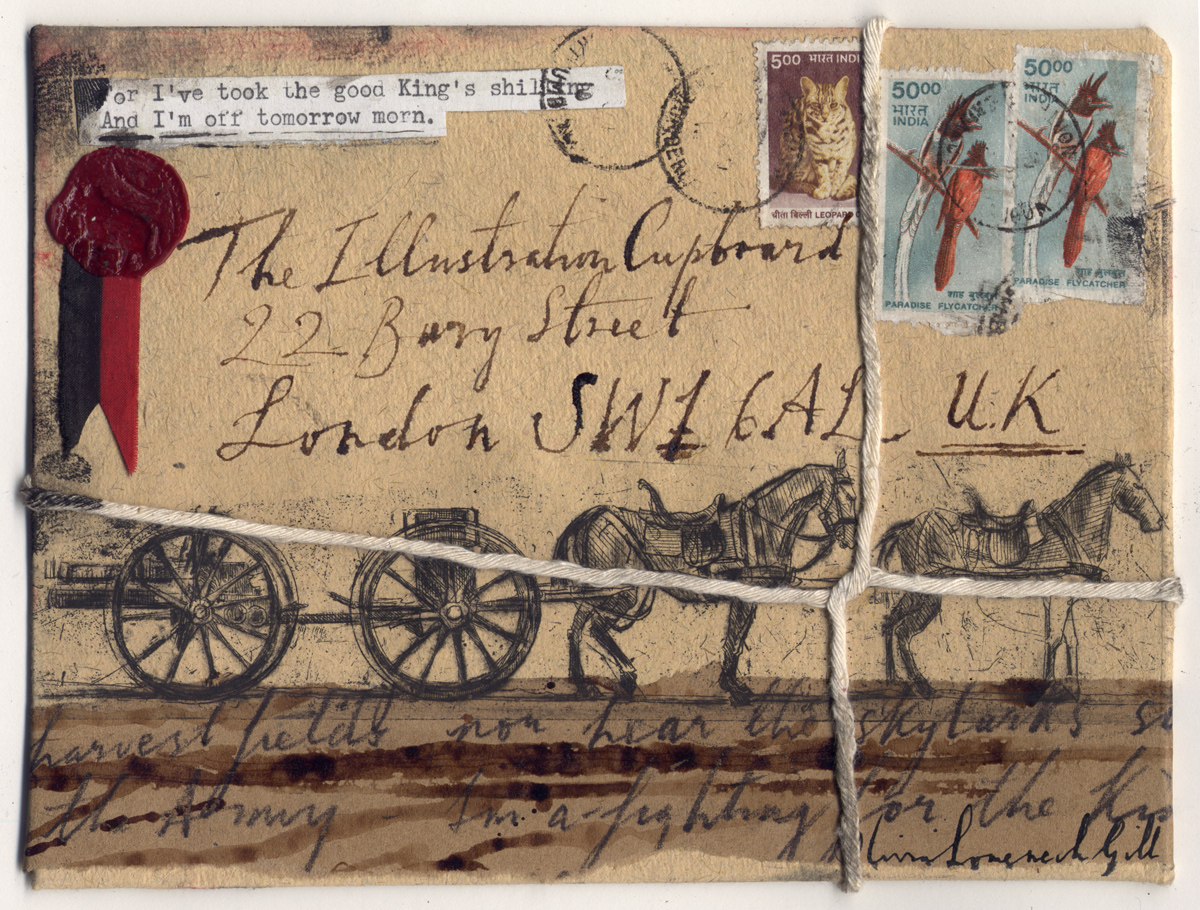 or I've took the good King's shilling
And I'm off tomorrow morn.
5.00 भारत INDIA
चीता बिल्ली LEOPARD
50.00
भारत
INDIA
शाह बुलबुल
PARADISE FLYCATCHER
50.00
भारत
INDIA
शाह बुलबुल
PARADISE FLYCATCHER
The Illustration Cupboard
22 Bury Street
London SW1 6AL U.K
harvest fields nor hear the skylarks
the Army - I'm a-fighting for the
Olivia Lomenech Gill